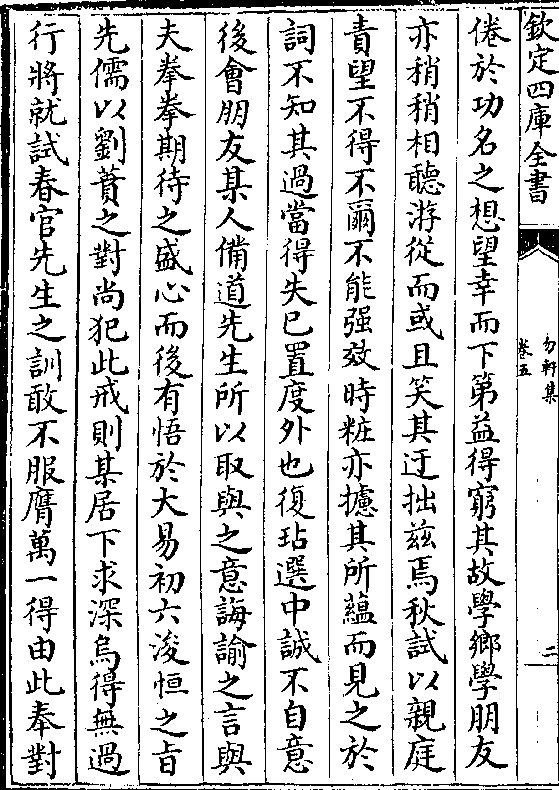 欽定四庫全書
勿軒集
卷五
二
倦於功名之想望幸而下第益得窮其故學鄉學朋友
亦稍稍相聽游從而或且笑其迂拙兹焉秋試以親庭
責望不得不爾不能强效時粧亦攄其所蘊而見之於
詞不知其過當得失已置度外也復玷選中誠不自意
後會朋友某人備道先生所以取與之意誨諭之言與
夫拳拳期待之盛心而後有悟於大易初六浚恒之旨
先儒以劉蕡之對尚犯此戒則某居下求深烏得無過
行將就試春官先生之訓敢不服膺萬一得由此奉對